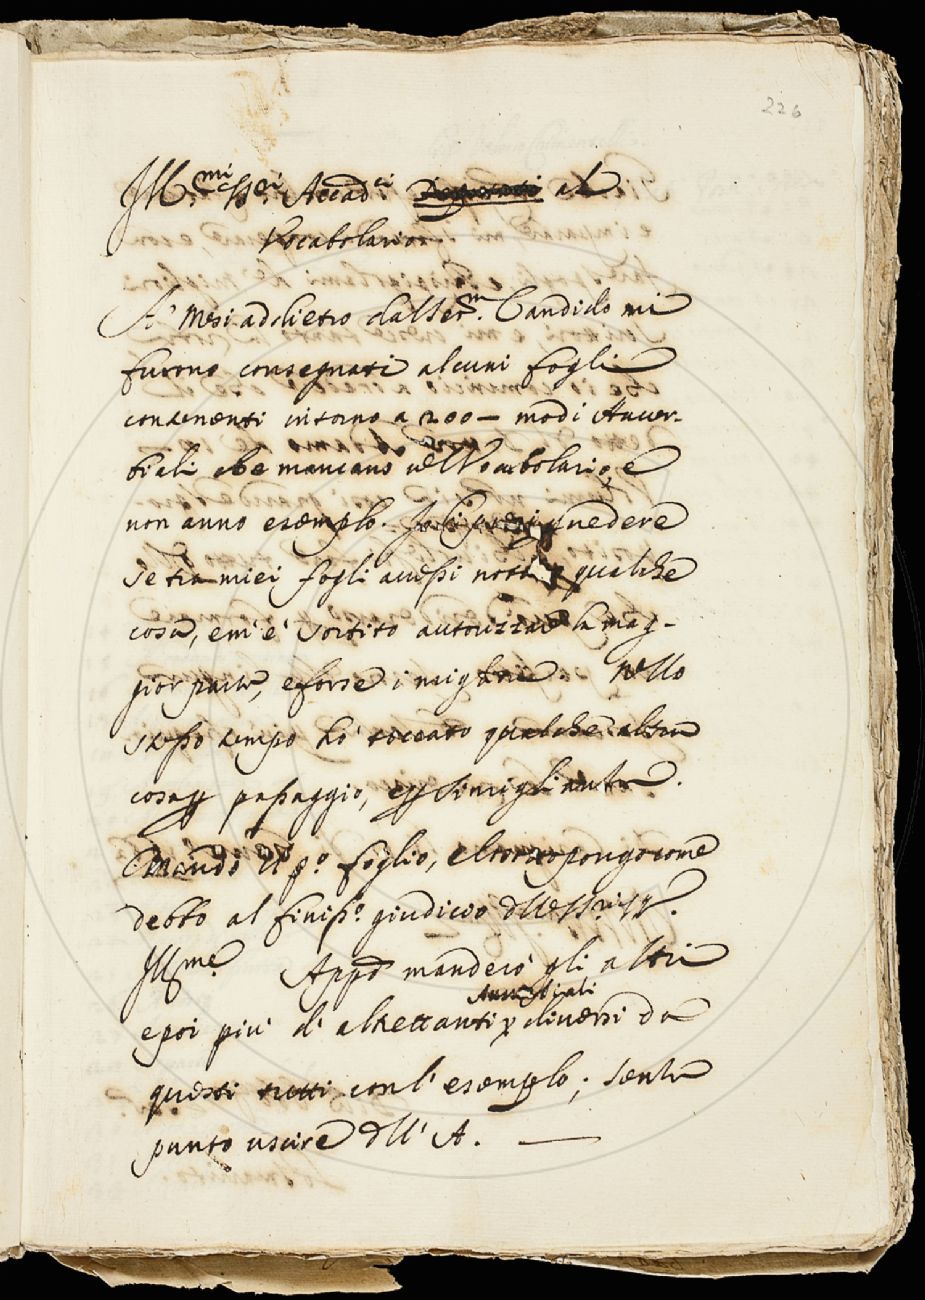 226
Ill.mi SS.ri Accad.ci Deputati al
Vocabolario.
A' Mesi addietro dal Ser.m Candido mi
furono consegnati alcuni fogli
contenenti intorno a 200 — modi Auuer-
biali che mancano nel Vocabolario e
non anno esempio. Io li presi p uedere
se tra miei fogli auessi notato qualche
cosa, e mi e' sortito autorizzare la mag-
gior parte, e forse i migliori. Nello
stesso tempo ho' toccato qualche altra
cosa p passaggio, e p simigliante.
Mando il p.o foglio, e lo sottopongo come
debbo al finiss.o giudicio dlle SS.rie VV.
Ill.me Appo manderò gli altri
Auuerbiali
e poi piu' di altrettanti diuersi da
questi tutti con l' esempio; senza
punto uscire dll' A. —